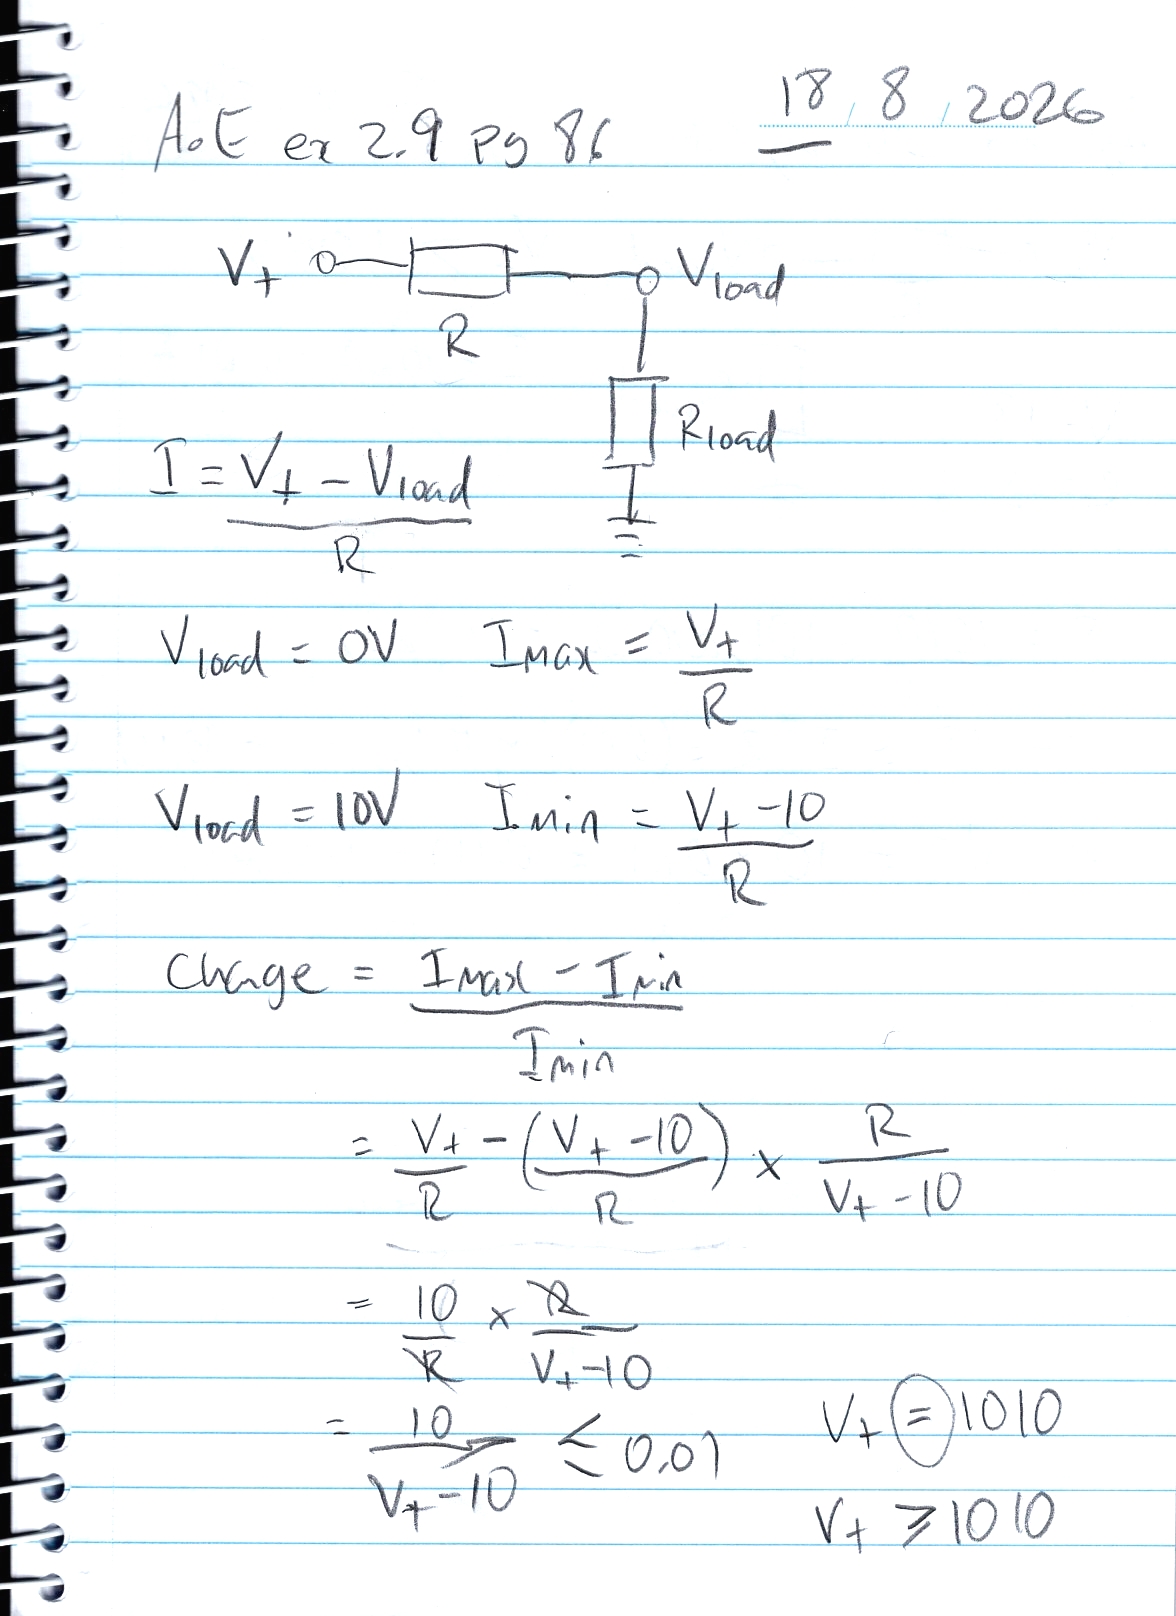 A.o.E ex 2.9 pg 86 18.8.2026
V+ R Vload
Rload
I = V+ - Vload
R
Vload = 0V Imax = V+
R
Vload = 10V Imin = V+ - 10
R
Change = Imax - Imin
Imin
= V+ - (V+ - 10) × R
R R V+ - 10
= 10 × R
R V+ - 10
= 10 ≤ 0.01 V+ = 1010
V+ - 10 V+ ≥ 1010